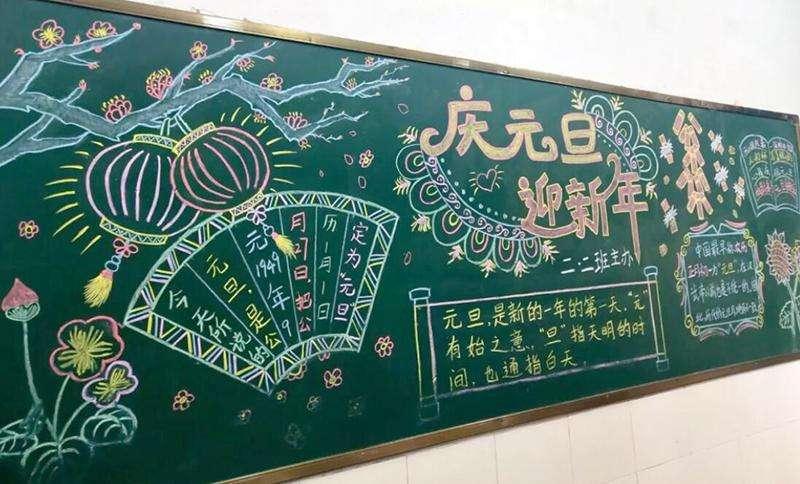 庆元旦
迎新年
二.二班主办
今天所说的
元旦,是公
元1949年9
月27日,把公
历一月一日
定为"元旦"
元旦,是新的一年的第一天,"元"
有始之意,"旦"指天明的时
间,也通指白天.
中国最早称农历
正月初一为"元旦",在汉